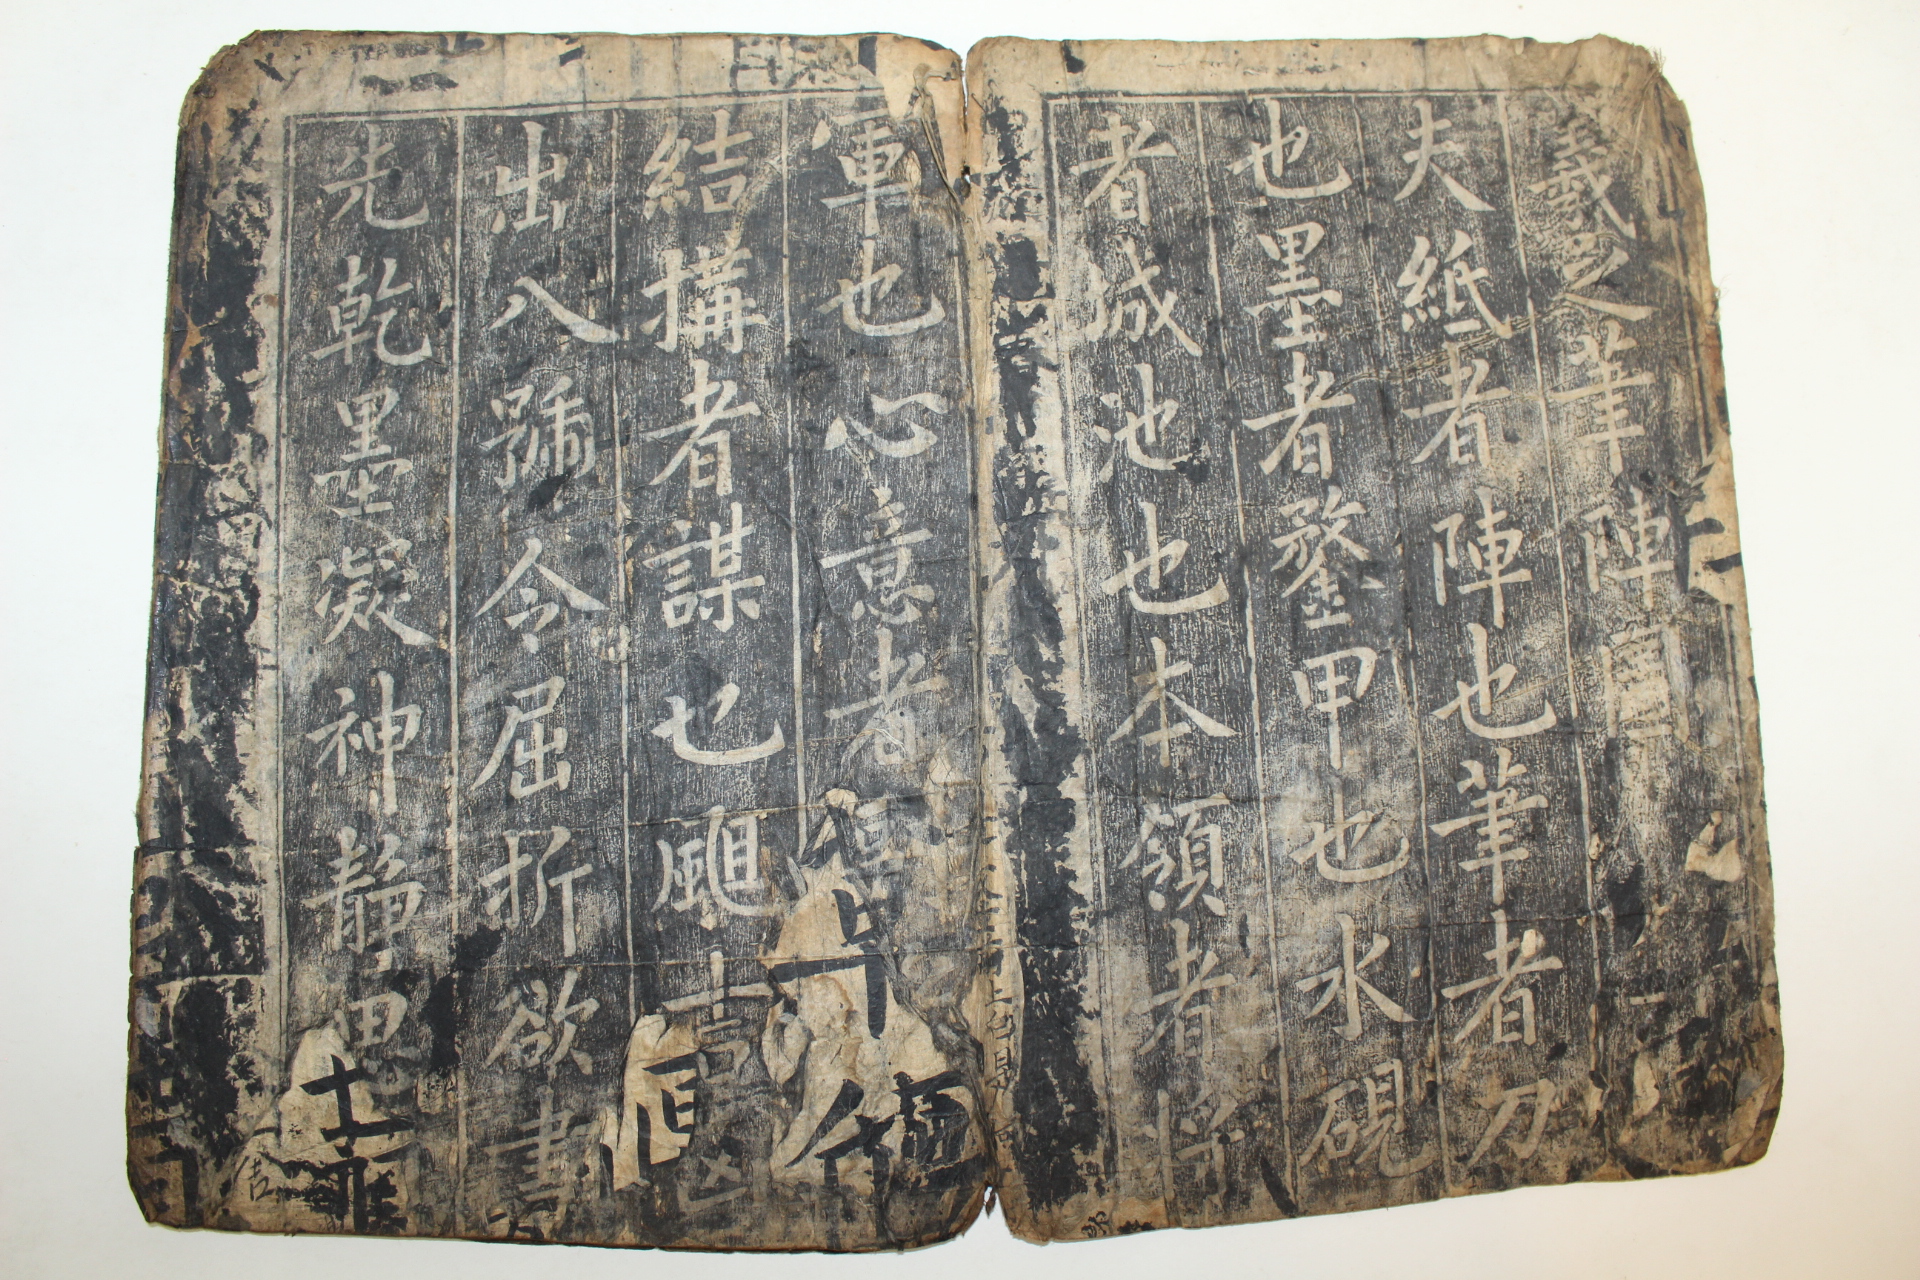 羲之筆陣圖
夫紙者陣也筆者刀
也墨者鍪甲也水硯
者城池也本領者將
軍也心意者副
結構者謀也颺筆者吉凶
出入號令屈折
先乾墨凝神静思
欲書